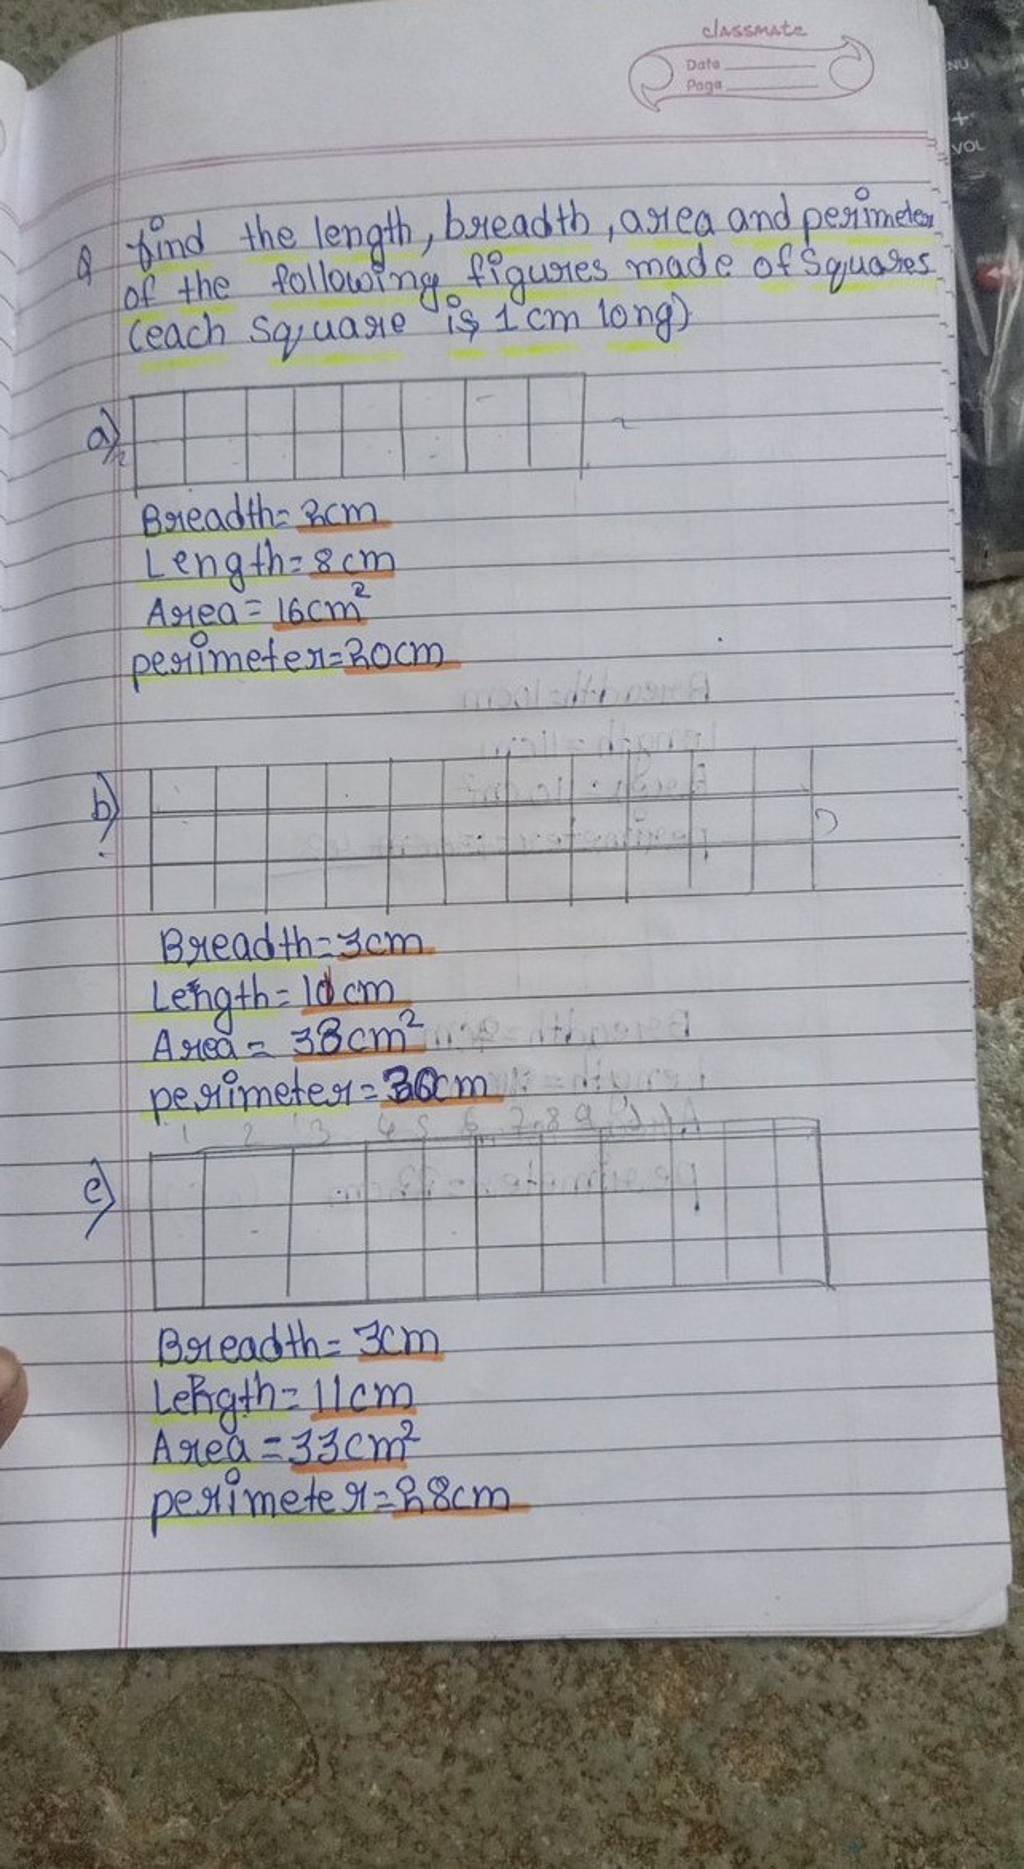 classmate
Date
Page
NU
+
VOL
Q find the length, breadth, area and perimeter
of the following figures made of squares
(each square is 1 cm long)
a)
Breadth= 2cm
Length= 8cm
Area= 16cm²
perimeter=20cm
b)
Breadth=3cm
Length= cm
Area= cm²
perimeter= cm
1 2 3 4 5 6 7 8 9
c)
Breadth= 3cm
Length= 11cm
Area =33cm²
perimeter=28cm